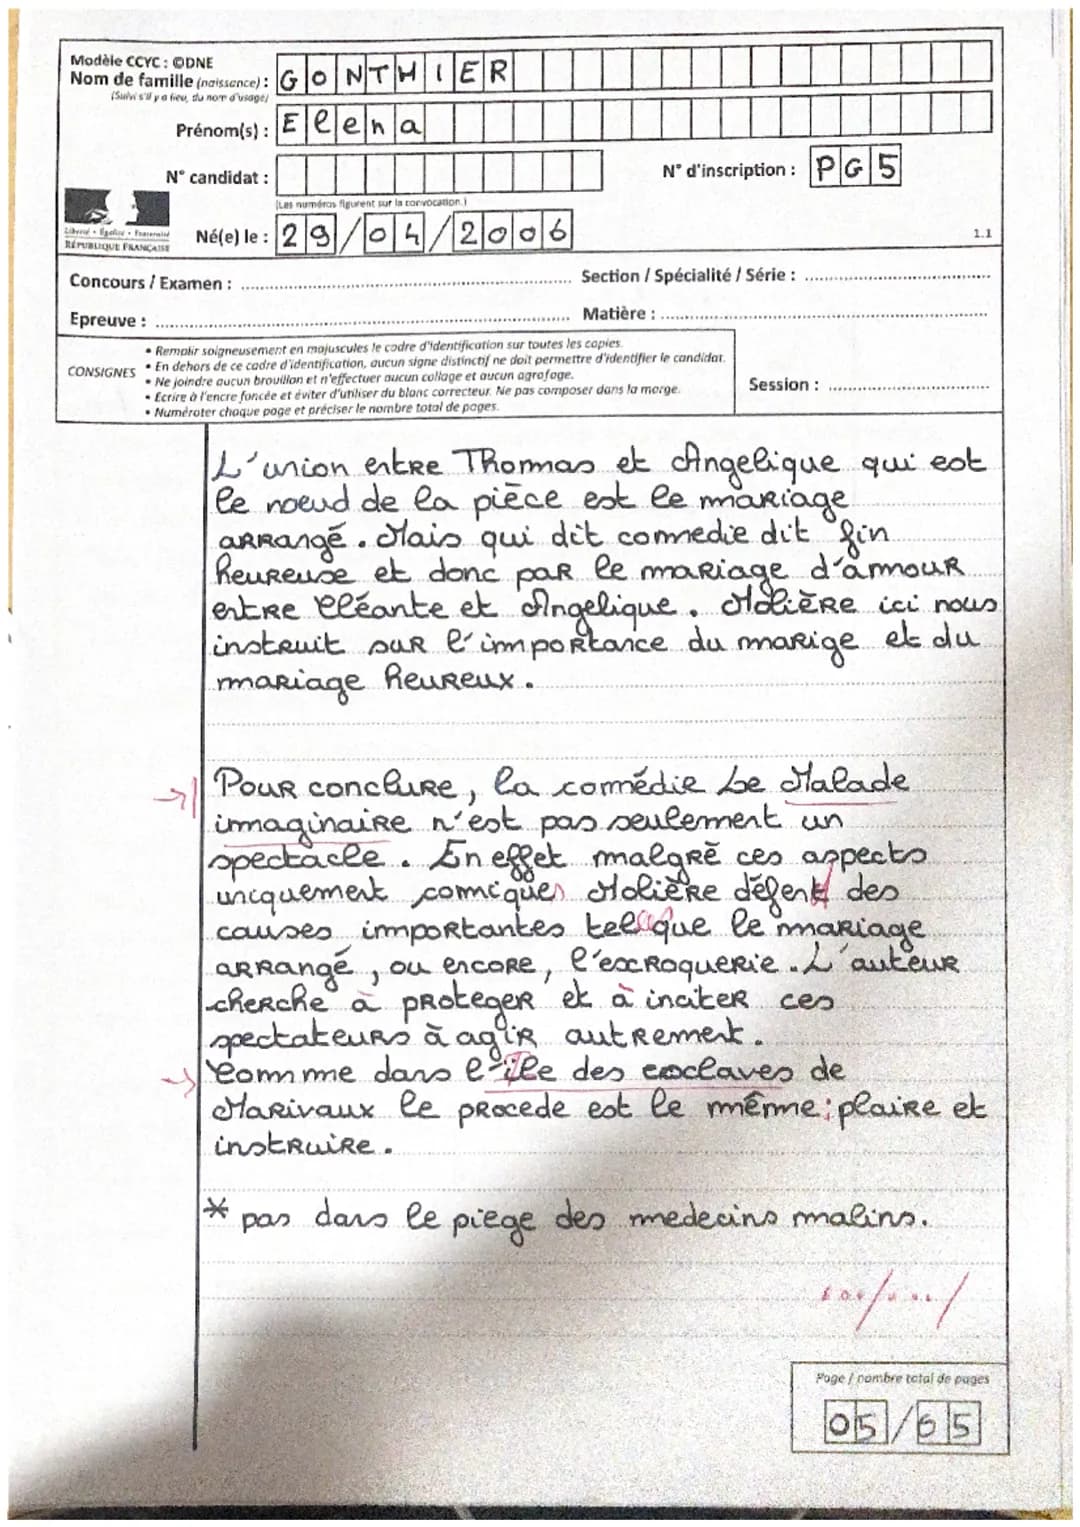 Modèle CCYC : ©DNE
Nom de famille (naissance) : GONTHIER
(Suivi s'il y a lieu, du nom d'usage)
Prénom(s) : Elena
N° candidat :
N° d'inscription : PG5
(Les numéros figurent sur la convocation.)
Liberté • Égalité • Fraternité
RÉPUBLIQUE FRANÇAISE
Né(e) le : 29/04/2006
1.1
Concours / Examen :
Section / Spécialité / Série :
Epreuve :
Matière :
CONSIGNES
• Remplir soigneusement en majuscules le cadre d'identification sur toutes les copies.
• En dehors de ce cadre d'identification, aucun signe distinctif ne doit permettre d'identifier le candidat.
• Ne joindre aucun brouillon et n'effectuer aucun collage et aucun agrafage.
• Ecrire à l'encre foncée et éviter d'utiliser du blanc correcteur. Ne pas composer dans la marge.
• Numéroter chaque page et préciser le nombre total de pages.
Session :
L'union entre Thomas et Angelique qui est
le noeud de la pièce est le mariage
arrangé. Mais qui dit comedie dit fin
heureuse et donc par le mariage d'amour
entre Cléante et Angelique. Molière ici nous
instruit sur l'importance du marige et du
mariage heureux.
Pour conclure, la comédie Le Malade
immaginaire n'est pas seulement un
spectacle. En effet malgré ces aspects
uniquement comiques Molière défent des
causes importantes tel que le mariage
arrangé, ou encore, l'escroquerie. L'auteur
cherche à proteger et à inciter ces
spectateurs à agir autrement.
Comme dans l'île des esclaves de
Marivaux le procede est le même : plaire et
instruire.
* pas dans le piege des medecins malins.
Page / nombre total de pages
05/65